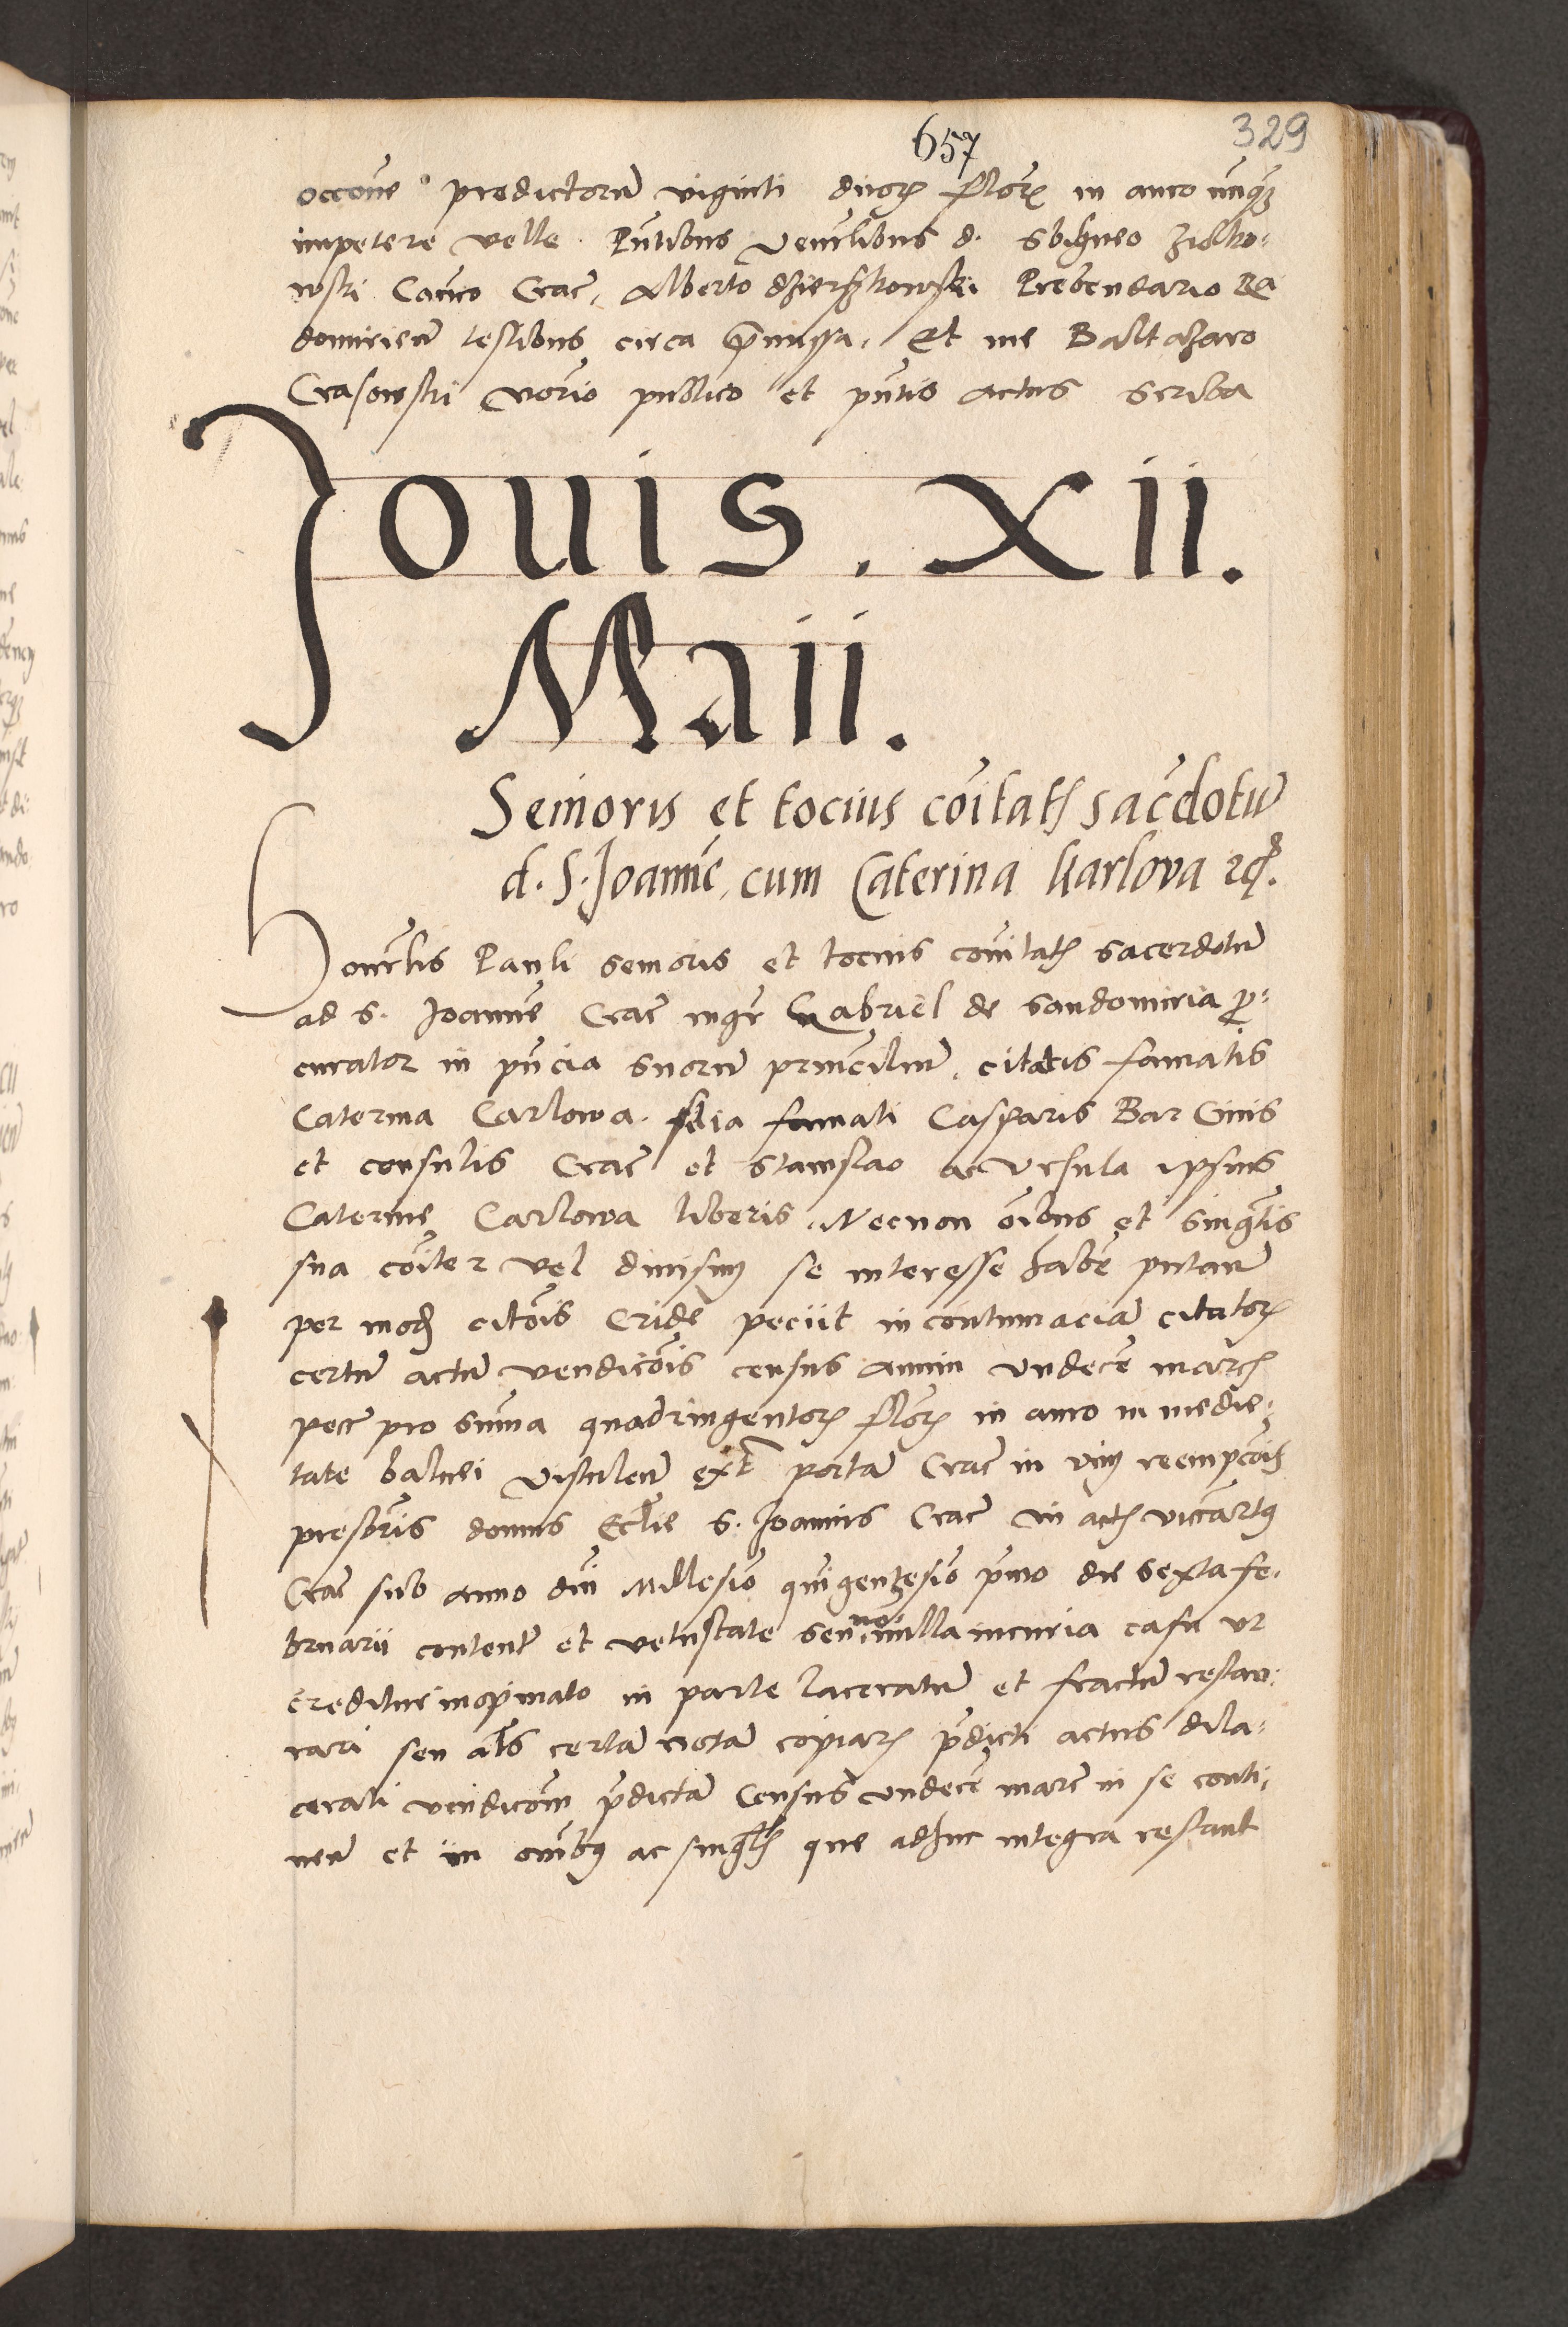 657
329
occone predictorum viginti duorum floren in auro nunquam
impetere velle. Pntibus Venerlibus d. Sbigneo Ziolko-
wski Canco Crac, Alberto Dzierzkowski Prebendario Ra
domirien testibus circa premissa. Et me Baltazaro
Crasowski Notario publico et pntis actus scriba
Jouis. XII.
Maii.
Senioris et tocius coitatis sacdotum
d. S. Joannis, cum Caterina Karlova
Honorlis Pauli senioris et tocius comitatis sacerdotum
ad S. Joannem Crac mgr Gabriel de Sandomiria pro-
curator in pncia suorum principalium, citatis famatis
Caterina Carlowa filia famati Casparis Bar Civis
et consulis Crac et Stanislao ac Vrsula ipsius
Caterine Carlowa liberis, Necnon oibus et singulis
sua coiter vel divisim se interesse haben putan
per modum citonis Cride peciit in contumaciam citatorum
certum actum vendiconis census annui vndecem marcis
pecc pro summa quadringentorum floren in auro in medie-
tate balnei Vistulen extra portam Crac in vim reempconis
presbris domus Ecclie S. Joannis Crac in actis vicariatus
Crac sub anno dni Millesimo quigentesimo primo die sexta fe-
bruarii content et vetustate seu non nulla incuria casu vt
creditur inopinato in parte laceratum et fractum restau-
rari seu als certam notam copiarum predicti actus dila-
cerati vendiconem predictam Census vndecem marc in se conti-
nen et in omnibus ac singulis que adhuc integra restant